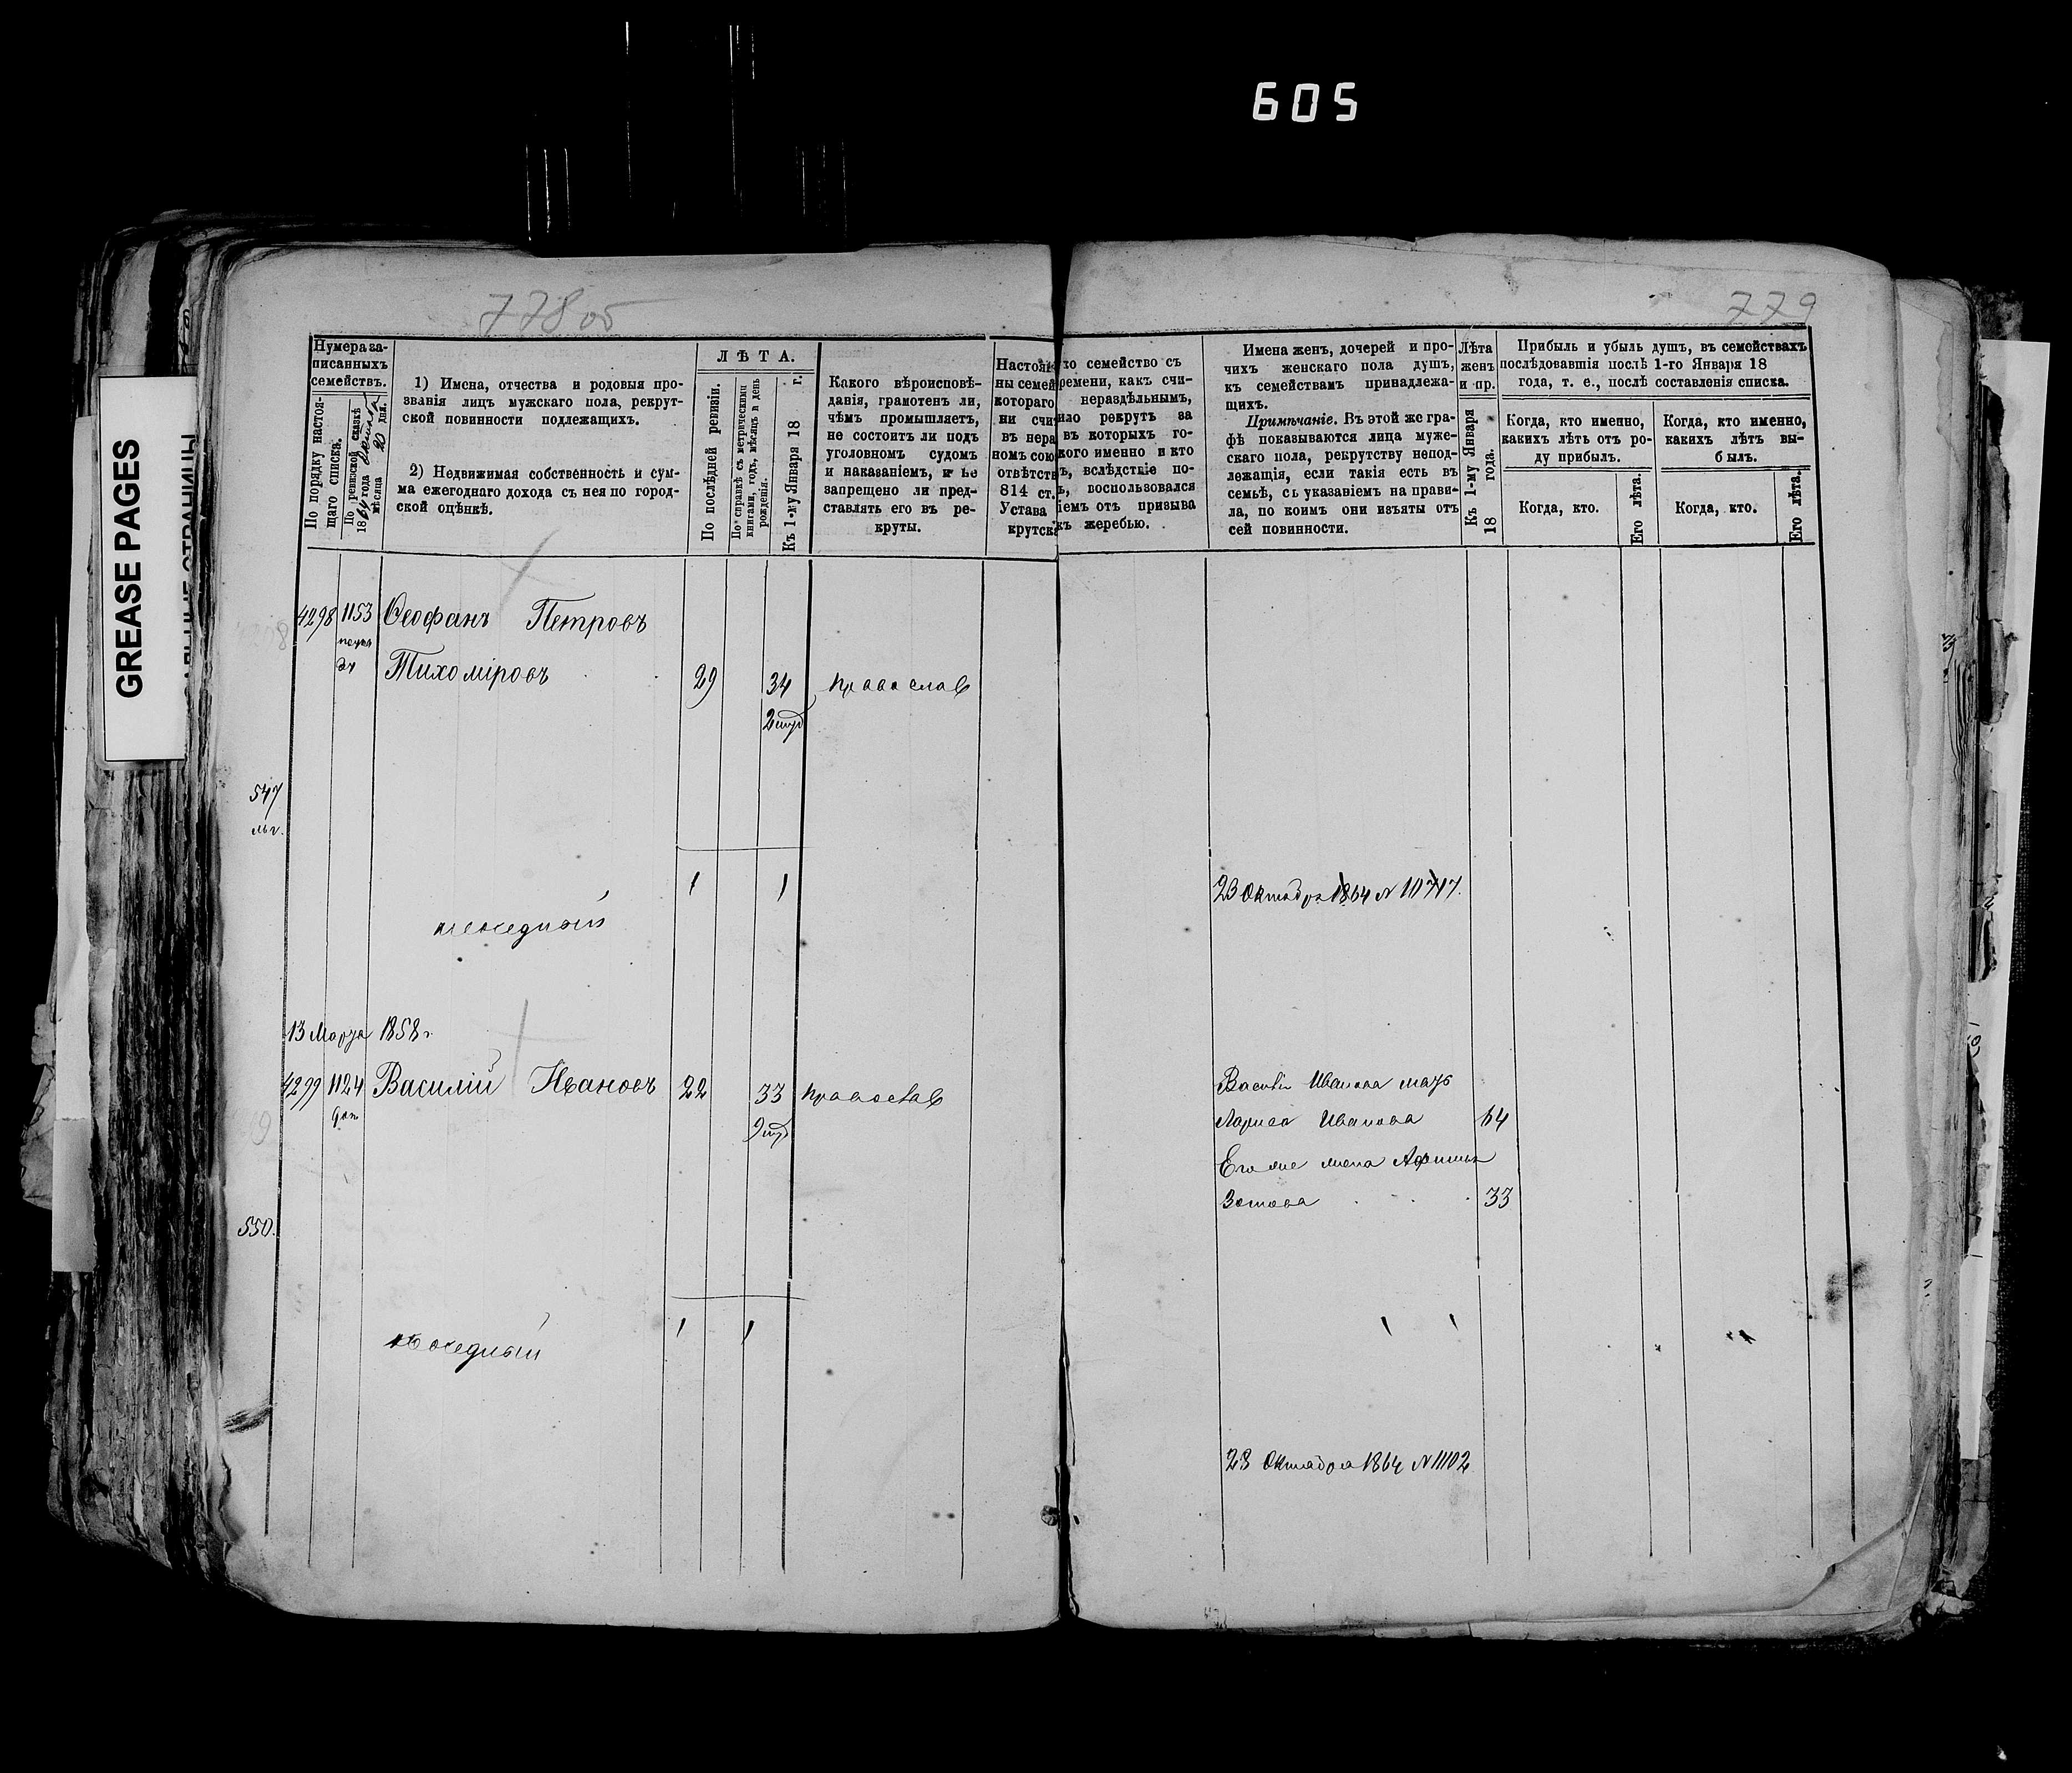 605
GREASE PAGES
778 об
779
Нумера за-
писанныхъ
семействъ.
По порядку настоя-
щаго списка.
По ревизской сказкѣ
18 года
мѣсяца 20 дня.
1) Имена, отчества и родовыя про-
званія лицъ мужскаго пола, рекрут-
ской повинности подлежащихъ.
2) Недвижимая собственность и сум-
ма ежегоднаго дохода съ нея по город-
ской оцѣнкѣ.
ЛѢТА.
По послѣдней ревизіи.
По справкѣ съ метрическими
книгами, годъ, мѣсяцъ и день
рожденія.
Къ 1-му Января 18 г.
Какого вѣроисповѣ-
данія, грамотенъ ли,
чѣмъ промышляетъ,
не состоитъ ли подъ
уголовномъ судомъ
и наказаніемъ, и не
запрещено ли пред-
ставлять его въ ре-
круты.
Настоя
ны семей
котораго
ни счи
въ нера
номъ сою
отвѣтств
814 ст.
Устава
крутск
хо семейство съ
ремени, какъ счи-
нераздѣльнымъ,
ило рекрутъ за
въ которыхъ го-
кого именно и кто
ъ, вслѣдствіе по-
ь, воспользовался
іемъ отъ призыва
къ жеребью.
Имена женъ, дочерей и про-
чихъ женскаго пола душъ,
къ семействамъ принадлежа-
щихъ.
Примѣчаніе. Въ этой же гра-
фѣ показываются лица муже-
скаго пола, рекрутству непод-
лежащія, если такія есть въ
семьѣ, съ указаніемъ на прави-
ла, по коимъ они изъяты отъ
сей повинности.
Лѣта
женъ
и пр.
Къ 1-му Января
18 года.
Прибыль и убыль душъ, въ семействахъ
послѣдовавшія послѣ 1-го Января 18
года, т. е., послѣ составленія списка.
Когда, кто именно,
какихъ лѣтъ отъ ро-
ду прибылъ.
Когда, кто именно,
какихъ лѣтъ вы-
былъ.
Когда, кто.
Его лѣта.
Когда, кто.
Его лѣта.
4298 1153 Ѳеофанъ Петровъ
Тихоміровъ 29 34 православ
2
547
1 1
23 Октября 1864 N 11717.
13 Марта 1858 г.
4299 1124 Василій Ивановъ 22 33 православ
9
Василія Иванова мать
Лариса Иванова 64
Его же жена
Зотова 33
550.
1 1
1 1
23 Октября 1864 N 11102